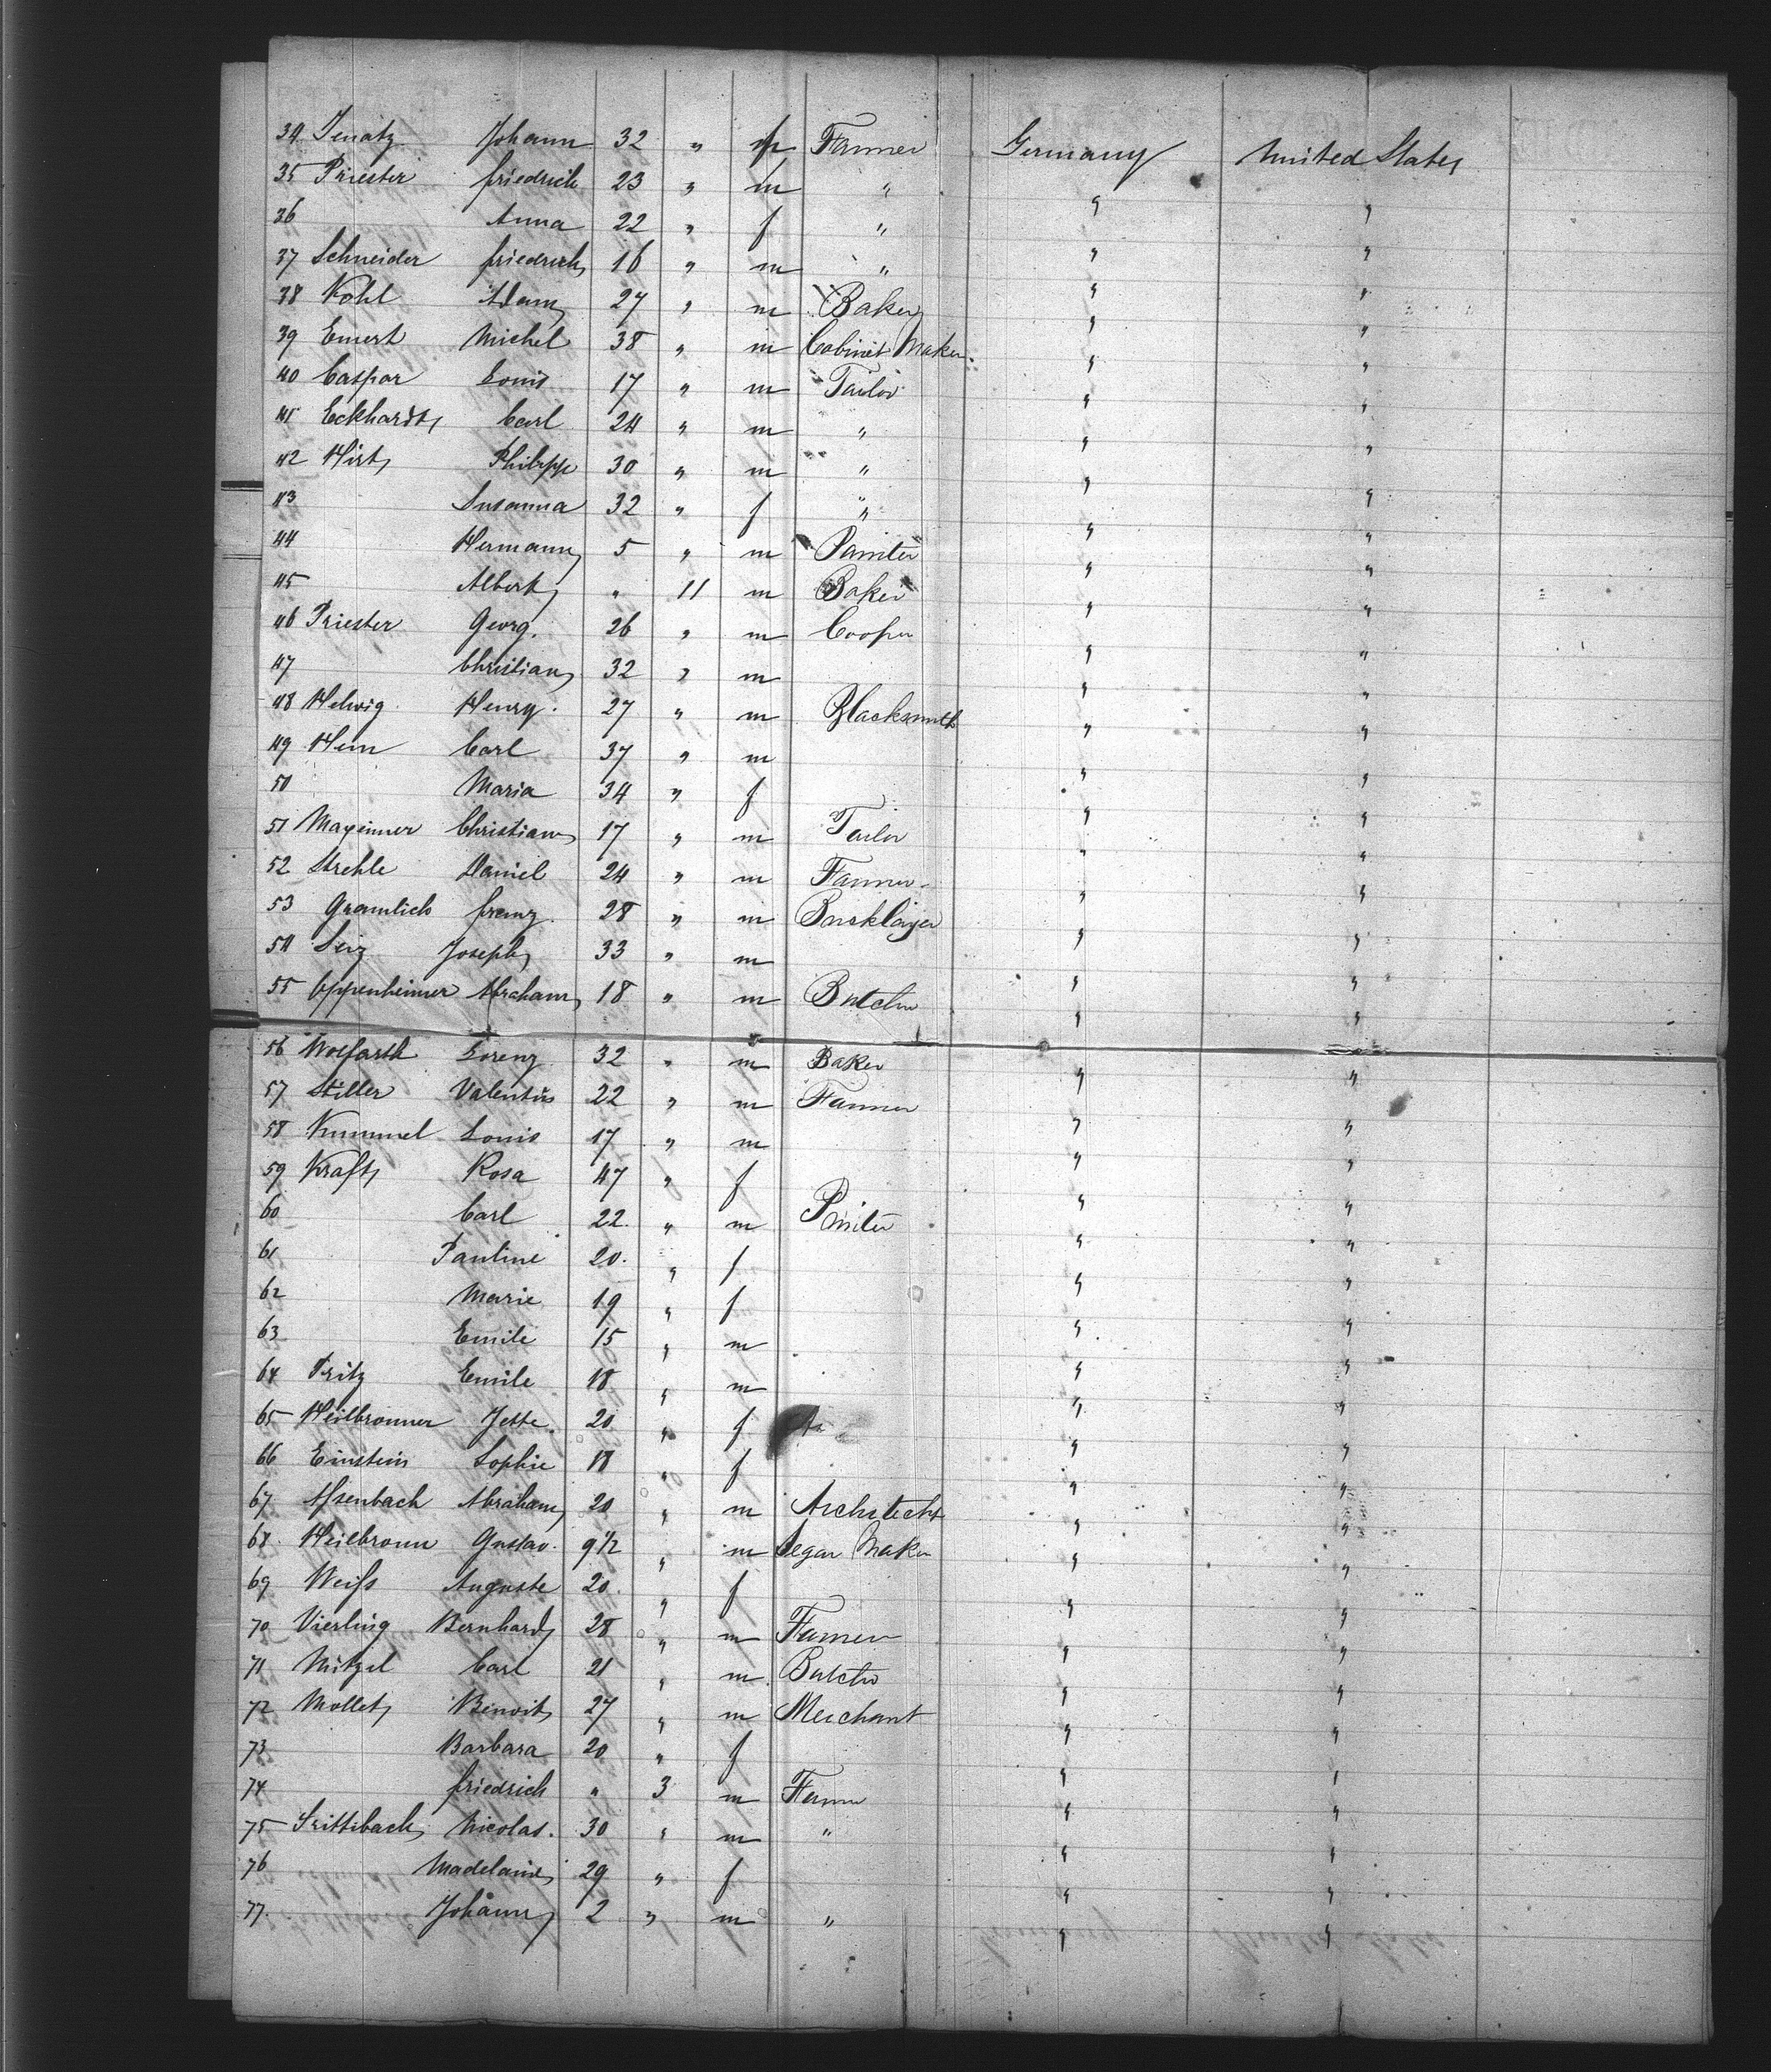 34 Jenatz Johann 32 " m Farmer Germany United States
35 Priester friedrich 23 " m " " "
36 Anna 22 " f " " "
37 Schneider friedrich 16 " m " " "
38 Kohl Adam 27 " m Baker " "
39 Emert Michel 38 " m Cabinet Maker " "
40 Caspar Louis 17 " m Tailor " "
41 Eckhardt Carl 24 " m " " "
42 Hirt Philipp 30 " m " " "
43 Susanna 32 " f " " "
44 Hermann 5 " m Painter " "
45 Albert " 11 m Baker " "
46 Priester Georg. 26 " m Cooper " "
47 Christian 32 " m " "
48 Helwig Henry. 27 " m Blacksmith " "
49 Hem Carl 37 " m " "
50 Maria 34 " f " "
51 Mayinner Christian 17 " m Tailor " "
52 Strehle Daniel 24 " m Farmer " "
53 Gramlich franz. 28 " m Bricklayer " "
54 Seiz Joseph 33 " m " "
55 Oppenheimer Abraham 18 " m Butcher " "
56 Wolfarth Lorenz 32 " m Baker " "
57 Stiller Valentin 22 " m Farmer " "
58 Kummel Louis 17 " m " "
59 Kraft Rosa 47 " f " "
60 Carl 22. " m Painter " "
61 Pauline 20. " f " "
62 Marie 19 " f " "
63 Emile 15 " m " "
64 Fritz Emile 18 " m " "
65 Heilbronner Jette. 20 " f " "
66 Einstein Sophie 18 " f " "
67 Assenbach Abraham 20 " m Architeckt " "
68. Heilbronn Gustav. 9 1/2 " m Segar Maker " "
69 Weiss Auguste 20. " f " "
70 Vierling Bernhard 28 " m Farmer " "
71 Nitzel Carl 21 " m Butcher " "
72 Mollet Benoit 27 " m Merchant " "
73 Barbara 20 " f " "
74 friedrich " 3 m Farmer " "
75 Nicolas. 30 " m " " "
76 Madelaine 29 " f " "
77. Johann 2 " m " " "